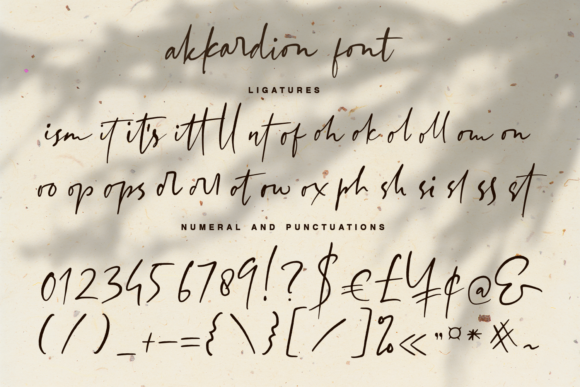 akkardion font
LIGATURES
ism it it's itt ll nt of oh ok ol oll om on
oo op ops or orl ot ow ox ph sh si sl ss st
NUMERAL AND PUNCTUATIONS
0123456789!?$€£¥¢@&
(/)_+-={\}[/]%«"¤*#~